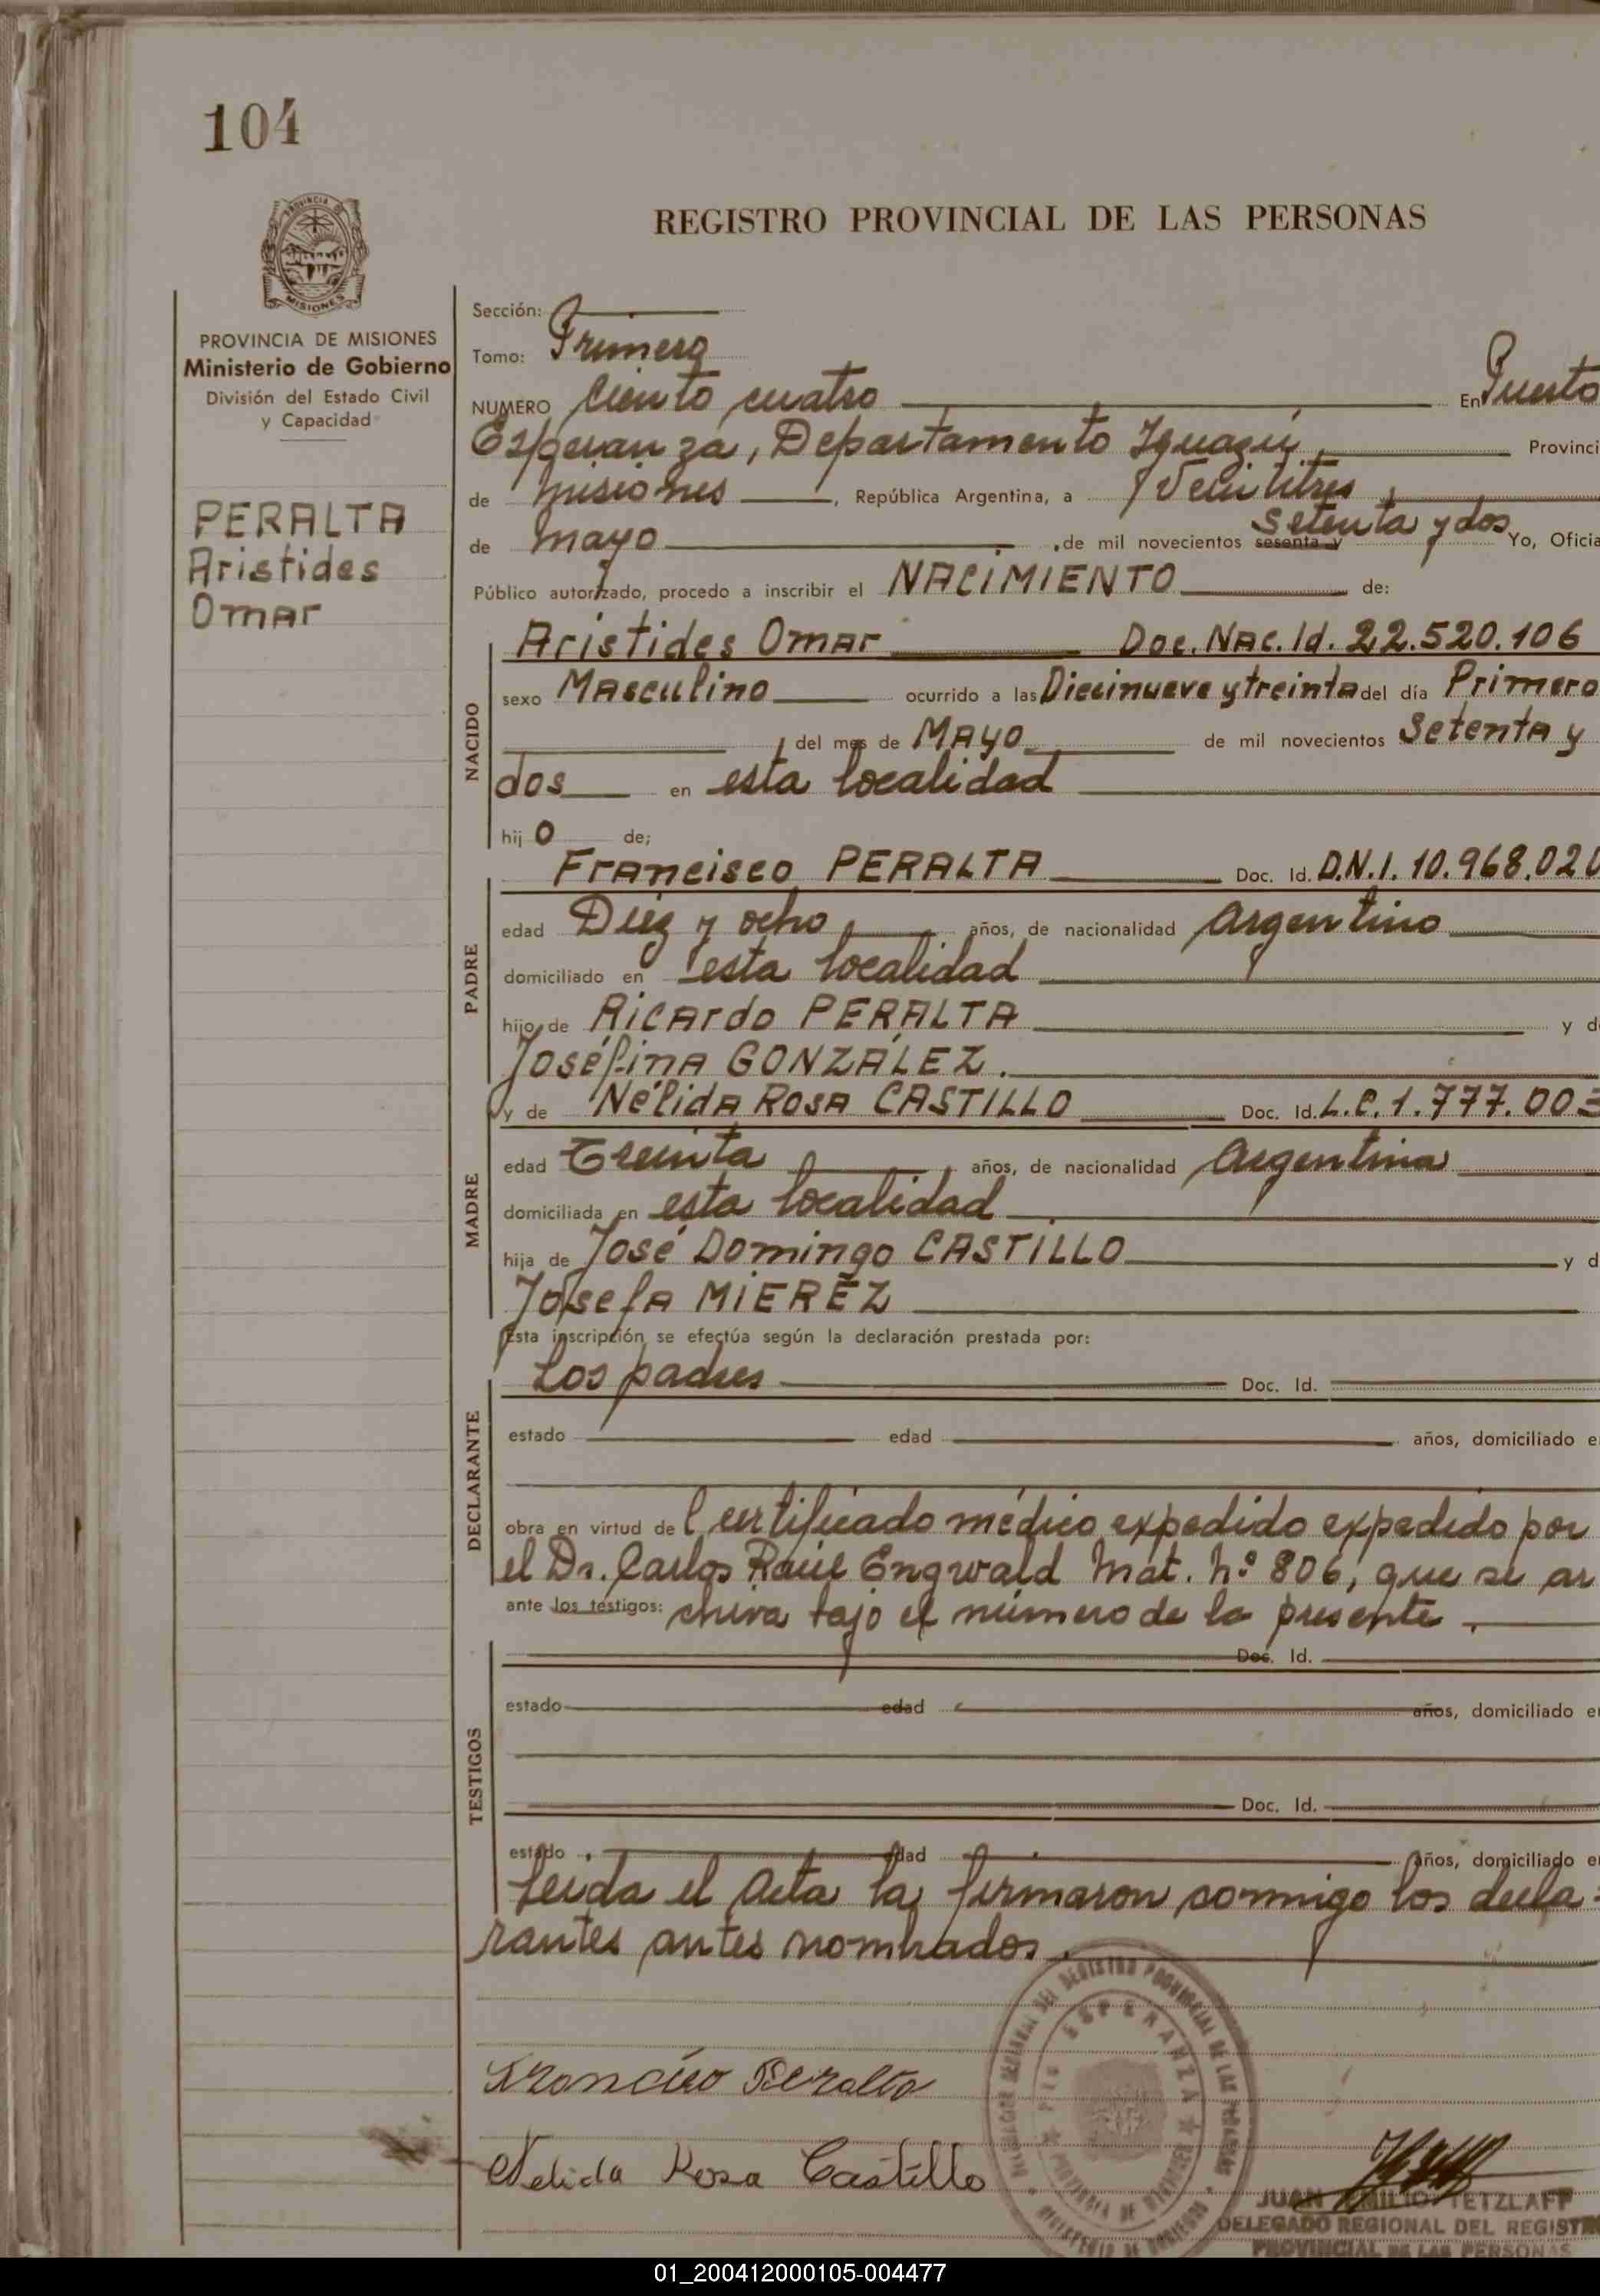 104
PROVINCIA DE
MISIONES
REGISTRO PROVINCIAL DE LAS PERSONAS
PROVINCIA DE MISIONES
Ministerio de Gobierno
División del Estado Civil
y Capacidad
PERALTA
Aristides
Omar
Sección:
Tomo: Primero
NUMERO Ciento cuatro En Puerto
Esperanza, Departamento Iguazú, Provinci
de Misiones, República Argentina, a Veintitres
de mayo, de mil novecientos sesenta y setenta y dos Yo, Oficia
Público autorizado, procedo a inscribir el NACIMIENTO de:
NACIDO
Aristides Omar Doc. Nac. Id. 22.520.106
sexo Masculino ocurrido a las Diecinueve y treinta del día Primero
del mes de Mayo de mil novecientos Setenta y
dos en esta localidad
hij o de;
PADRE
Francisco PERALTA Doc. Id. D.N.I. 10.968.020
edad Diez y ocho años, de nacionalidad argentino
domiciliado en esta localidad
hijo de Ricardo PERALTA y d
Joséfina GONZÁLEZ.
MADRE
y de Nélida Rosa CASTILLO Doc. Id. L.C. 1.777.003
edad Treinta años, de nacionalidad Argentina
domiciliada en esta localidad
hija de José Domingo CASTILLO y d
Josefa MIERÉZ
Esta inscripción se efectúa según la declaración prestada por:
DECLARANTE
Los padres Doc. Id.
estado edad años, domiciliado e
obra en virtud de Certificado médico expedido expedido por
el Dr. Carlos Raúl Engwald Mat. Nº 806, que se ar
ante los testigos: chiva bajo el número de la presente.
TESTIGOS
Doc. Id.
estado edad años, domiciliado e
Doc. Id.
estado edad años, domiciliado e
Leida el Acta la firmaron conmigo los decla-
rantes antes nombrados.
Francisco Peralta
Nelida Rosa Castillo
ESPERANZA
JUAN EMILIO TETZLAFF
DELEGADO REGIONAL DEL REGISTR
PROVINCIAL DE LAS PERSONAS
01_200412000105-004477